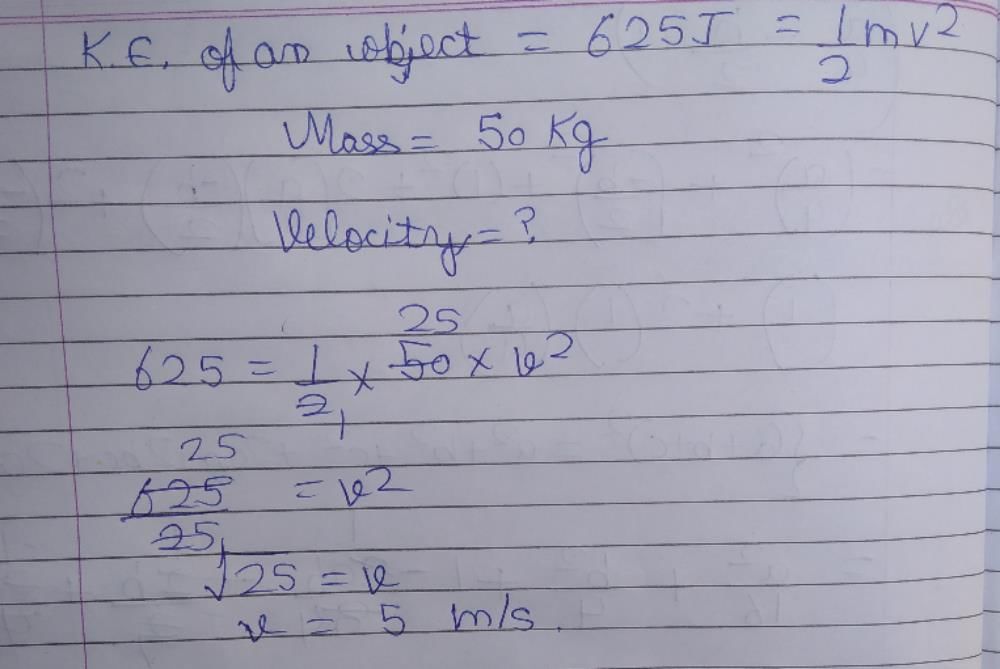 K.E. of an object = 625J = 1/2 mv²
Mass = 50 Kg
Velocity = ?
25
625 = 1/2 × 50 × v²
1
25
625/25 = v²
1
√25 = v
v = 5 m/s.